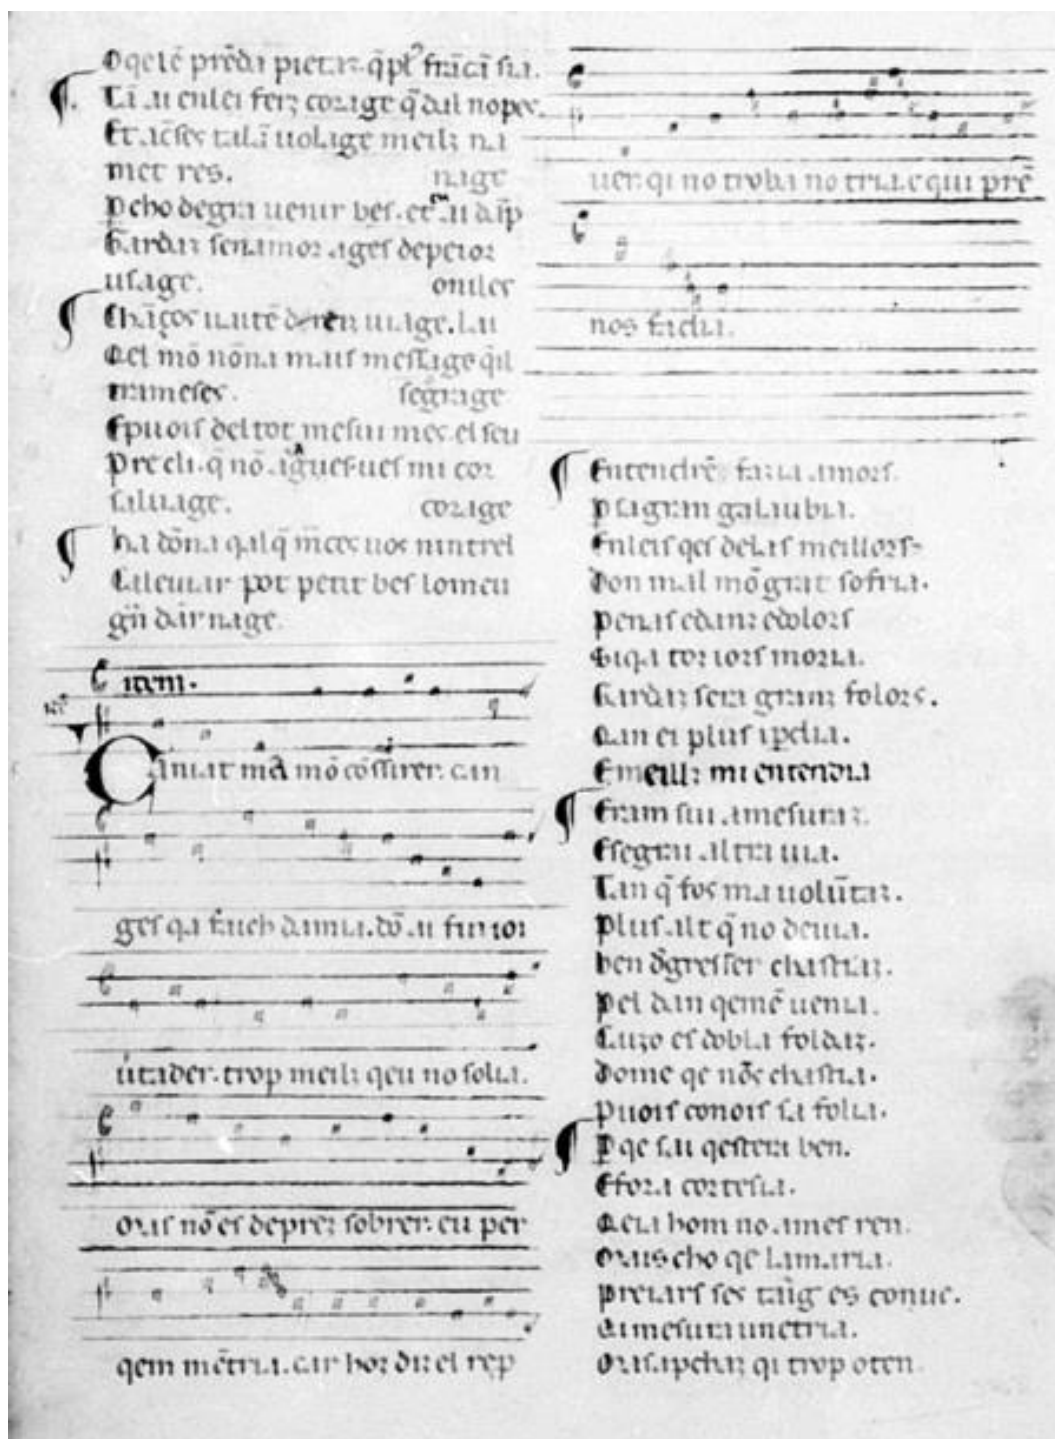 P qe lē prēda pietaz. q̄ pl⁹ frācī sia.
Tā au en lei feiz corage q̄ dal no pes.
Et acses talā uolage meilz na
met res. nage
P cho degra uenir bes. et au dāp
Gardaz sen amor ages de peior
usage. on iles
Chāços uaten uiage. lai
Qel mō nōna mais mesage qil
trameses. segnage
E puois del tot me sui mes. el seu
Pre cli. q̄ nō agues ues mi cor
saluage. corage
Na dōna qalq̄ mces uos nintrel
Caleuiar pot petit bes lo meu
gn̄ dāpnage.
item.
Caniat mā mō cōssirer. can
ges qa fauch damia. dō ai fin ioi
uitader. trop meilz qeu no solia.
Mais nō es de prez sobrer. eu per
qem mētria. car hoz diz el rep
uer. qi no troba no tria. e qui prē
nos fadia.
Entendrē faria amors.
P sa gran galaubia.
En leis qes de las meillors.
Don mal mō grat sofria.
Penas e danz e dolors
Si qa tor iors moria.
Gardaz sera granz folors.
Qan ei plus ipedia.
E meillz mi entendia
Eram sui amesuraz.
E segrai altra uia.
Tan q̄ fos ma uolūtaz.
Plus alt q̄ no deuia.
ben d̄gresser chastiaz.
Pel dan qe mē uenia.
Cuzo es dobla foldaz.
Dome qe nōs chastia.
Puois conois sa folia.
P qe sai qestera ben.
E fora cortesia.
Qeia hom no ames ren.
Mais cho qe lamaria.
Preiars ses taig es conue.
Qi mesura un etria.
Mais apchaz qi trop oten